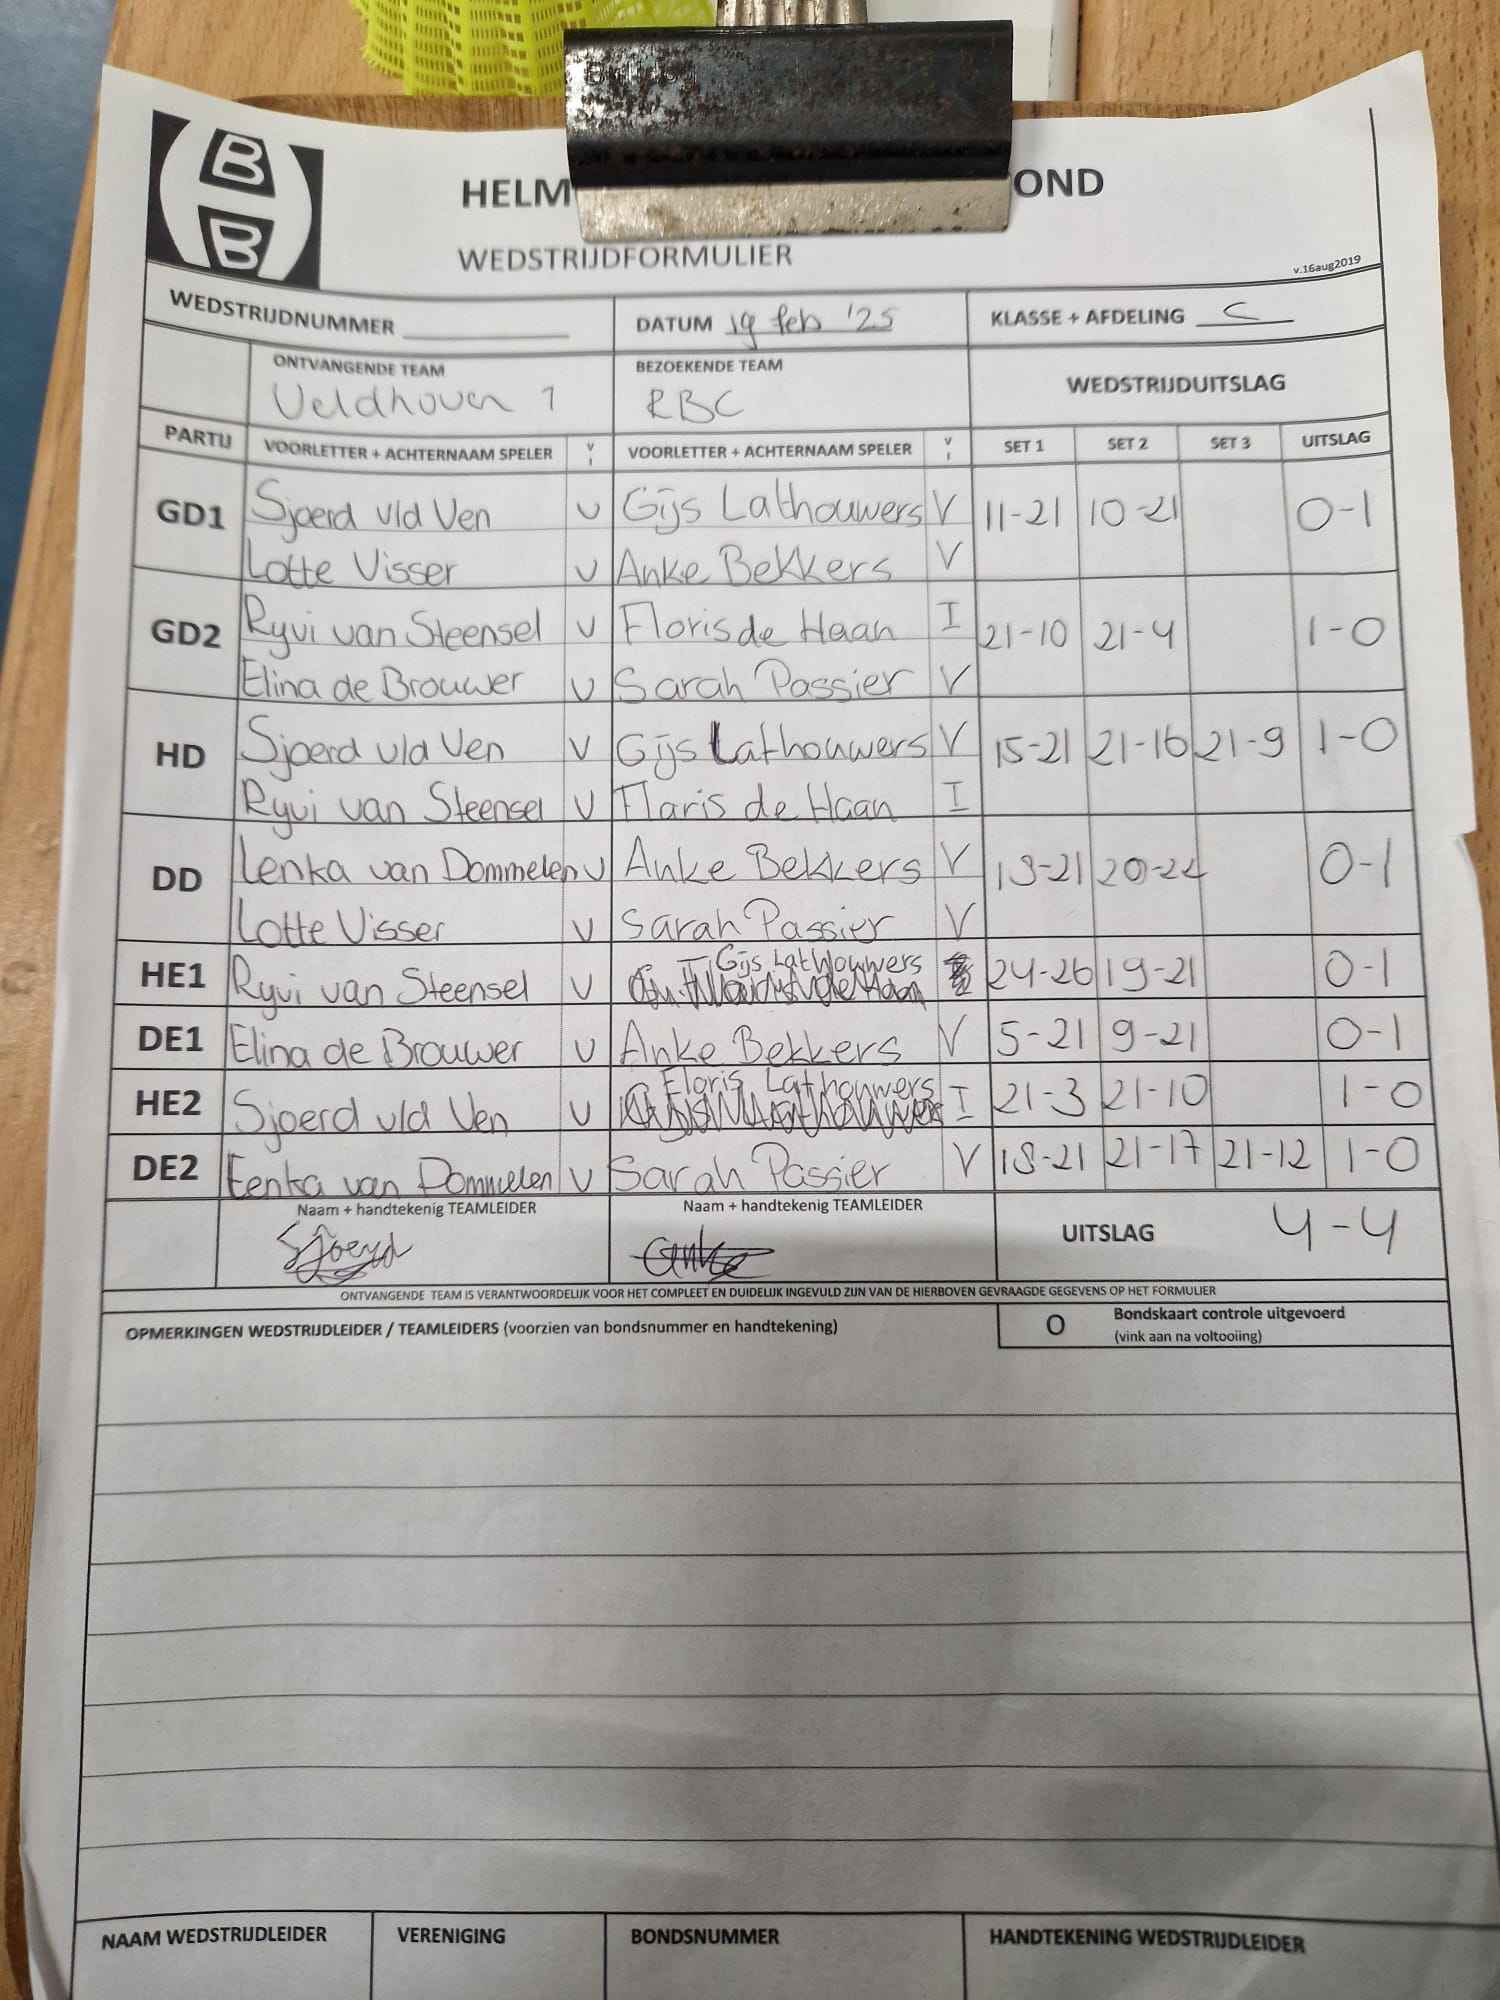 B B
HELM OND
WEDSTRIJDFORMULIER
v.16aug2019
WEDSTRIJDNUMMER
DATUM 19 feb '25
KLASSE + AFDELING C
ONTVANGENDE TEAM
Veldhoven 1
BEZOEKENDE TEAM
RBC
WEDSTRIJDUITSLAG
PARTIJ VOORLETTER + ACHTERNAAM SPELER V I VOORLETTER + ACHTERNAAM SPELER V I SET 1 SET 2 SET 3 UITSLAG
GD1 Sjoerd v/d Ven V Gijs Lathouwers V 11-21 10-21 0-1
Lotte Visser V Anke Bekkers V
GD2 Ryvi van Steensel V Floris de Haan I 21-10 21-4 1-0
Elina de Brouwer V Sarah Passier V
HD Sjoerd v/d Ven V Gijs Lathouwers V 15-21 21-16 21-9 1-0
Ryvi van Steensel V Floris de Haan I
DD Lenka van Dommelen V Anke Bekkers V 21 0-1
Lotte Visser V Sarah Passier V
HE1 Ryvi van Steensel V Gijs Lathouwers 24-26 19-21 0-1
DE1 Elina de Brouwer V Anke Bekkers V 5-21 9-21 0-1
HE2 Sjoerd v/d Ven V Floris Lathouwers I 21-3 21-10 1-0
DE2 Lenka van Dommelen V Sarah Passier V 18-21 21-17 21-12 1-0
Naam + handtekenig TEAMLEIDER
Sjoerd
Naam + handtekenig TEAMLEIDER
Anke
UITSLAG 4-4
ONTVANGENDE TEAM IS VERANTWOORDELIJK VOOR HET COMPLEET EN DUIDELIJK INGEVULD ZIJN VAN DE HIERBOVEN GEVRAAGDE GEGEVENS OP HET FORMULIER
OPMERKINGEN WEDSTRIJDLEIDER / TEAMLEIDERS (voorzien van bondsnummer en handtekening)
O Bondskaart controle uitgevoerd
(vink aan na voltooiing)
NAAM WEDSTRIJDLEIDER VERENIGING BONDSNUMMER HANDTEKENING WEDSTRIJDLEIDER